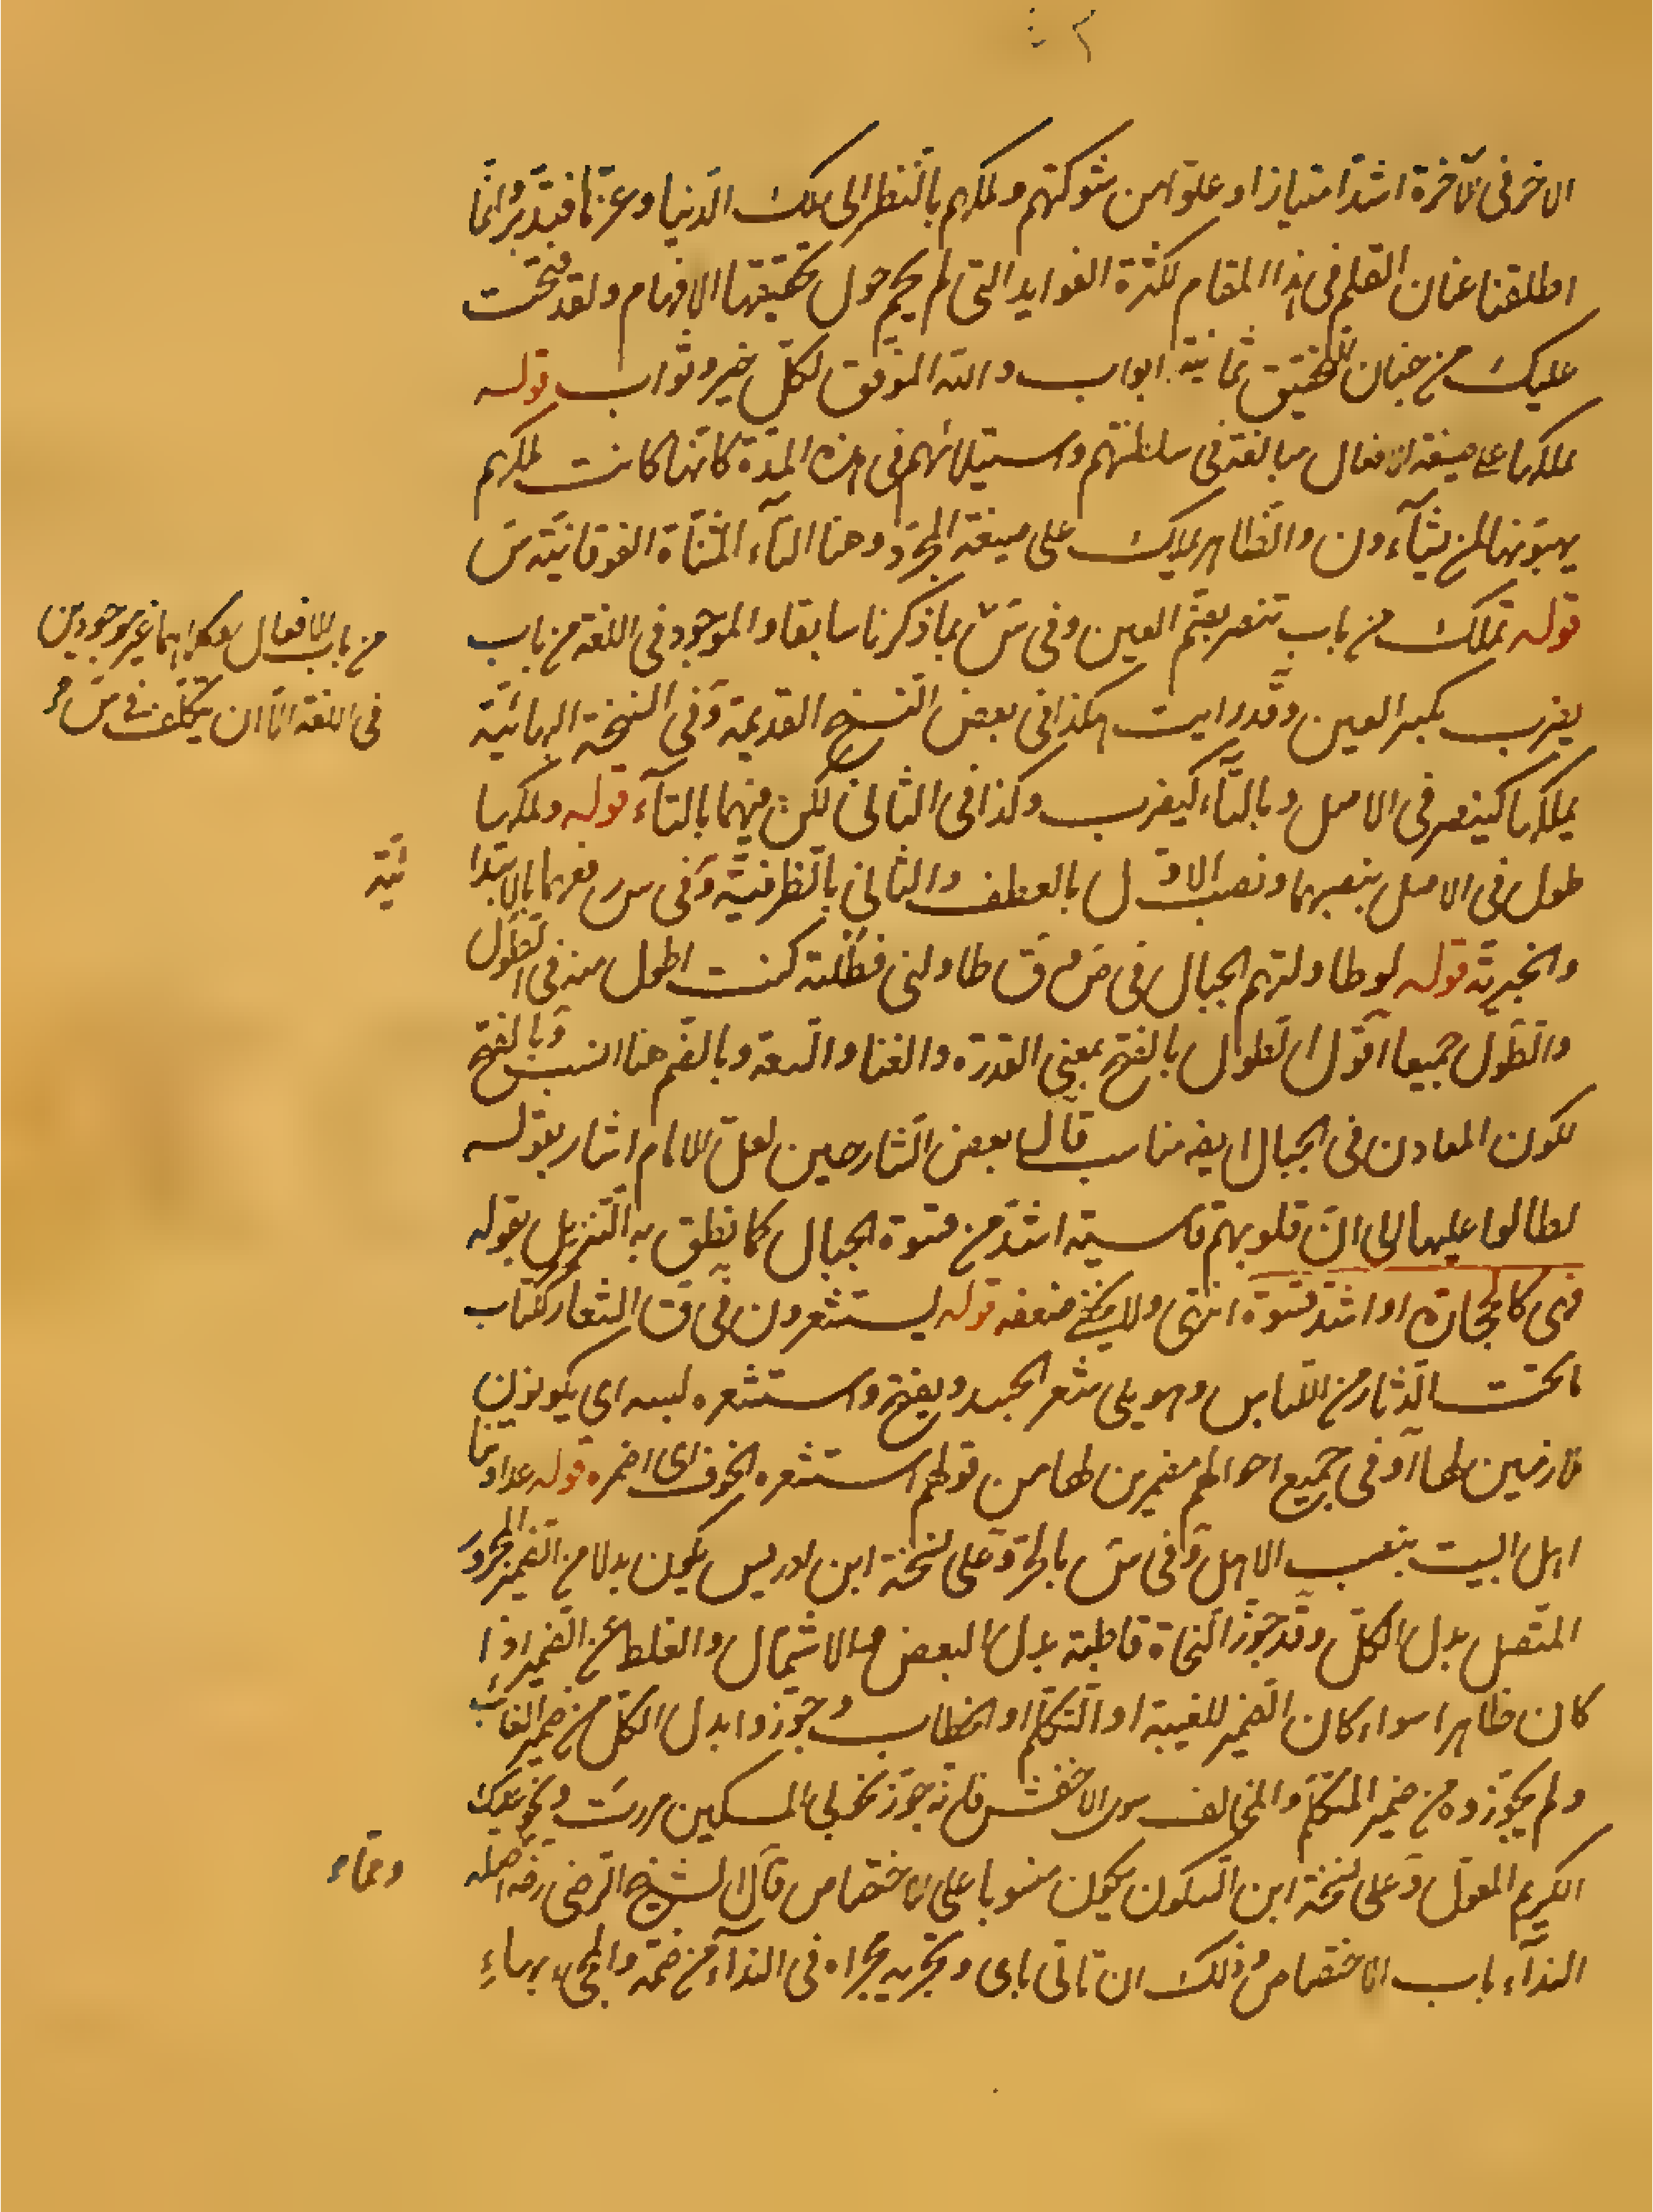 الاخر فى الآخرة اشدّ امتيازا و علوّا من شوكتهم و ملكهم بالنّظر الى ملك الدّنيا و عزّتها فتدبّر و انّما
اطلقنا عنان القلم فى هذا المقام لكثرة الفوايد التى لم يحم حول تحقيقها الافهام و لقد فتحت
عليك من جنان التّحقيق ثمانية ابواب و اللّه الموّفق لكلّ خير و ثواب قوله
يملكها على صيغة الافعال مبالغة فى سلطنتهم و استيلائهم فى هذه المدّة كانّها كانت ملكهم
يهبونها لمن يشآءون و الظّاهر يملك على صيغة المجرّد و هنا التآء المثنّاة الفوقانيّة سَ
قوله تملك من باب تنصر بضمّ العين و فى سَ بما ذكرنا سابقا و الموجود فى اللغة من باب
يضرب بكسر العين و قد رايت هكذا فى بعض النّسخ القديمة و فى النسخة البهائيّة
يملكها كينصر فى الاصل و بالتّآء كيضرب و كذا فى الثانى لكن فيهما بالتآء قوله و ملكها
طول فى الاصل بنصبهما و نصب الاوّل بالعطف و الثانى بالظّرفيّة و فى س رفعهما بالابتدا
و الخبريّة قوله لو طاولتهم الجبال فى ض م ق طاولنى فطُلته كنت اطول منه فى الطّول
و الطَّول جميعا اقول الطول بالفتح بمعنى القدرة و الغنا و السعة و بالضّم هنا انسب و بالفتح
لكون المعادن فى الجبال ايضه مناسب قال بعض الشّارحين لعلّ الامام اشار بقوله
لطالوا عليها الى انّ قلوبهم قاسية اشدّ من قسوة الجبال كما نطق به التّنزيل بقوله
فهى كالحجارة او اشدّ قسوة انتهى و لا يخفى ضعفه قوله يستشعرون فى ق الشعار ككتاب
ما تحت الدّثار من اللّباس و هو يلى شعر الجسد و يفتح و استشعره لبسه اى يكونون
لازمين لها او فى جميع احوالهم مضمرين لها من قولهم استشعره الخوف اى اضمره قوله عداوتنا
اهل البيت بنصب الاهل و فى سَ بالجرّ و على نسخة ابن ادريس يكون بدلا من الضّمير المجرور
المتّصل بدل الكلّ و قد جوّز النّحاة قاطبة بدل البعض و الاشتمال و الغلط عن الضّمير اذا
كان ظاهرا سواء كان الضّمير للغيبة او التّكلّم او الخطاب و جوّزوا بدل الكلّ من ضمير الغائب
و لم يجوّزوه من ضمير المتكلّم و المخالف سوى الاخفش فانّه جوّز نحو بى المسكين مررت و نحو عليك
الكريم المعوّل و على نسخة ابن السكون يكون منصوبا على الاختصاص قال الشيخ الرّضى رضه اصله
النداء باب الاختصاص و ذلك ان تاتى باى و تجريه مجراه فى الندآء من ضمّه و المجىء بهاء
من باب الافعال
فى اللغة الّا ان يتكلّف فى سَ